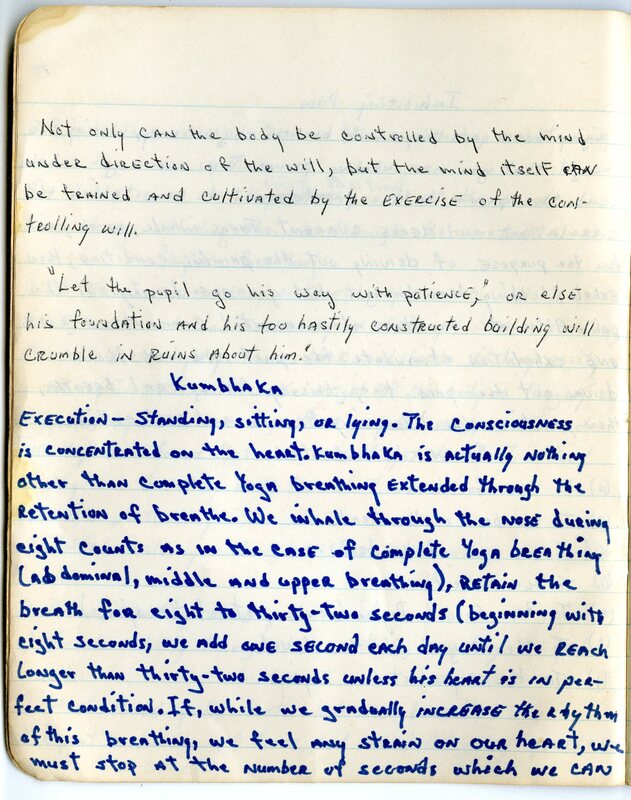 Not only can the body be controlled by the mind
under direction of the will, but the mind itself can
be trained and cultivated by the exercise of the con-
trolling will.
"Let the pupil go his way with patience," or else
his foundation and his too hastily constructed building will
crumble in ruins about him."
Kumbhaka
Execution - Standing, sitting, or lying. The consciousness
is concentrated on the heart. Kumbhaka is actually nothing
other than complete Yoga breathing extended through the
retention of breathe. We inhale through the nose during
eight counts as in the case of complete Yoga breathing
(abdominal, middle and upper breathing), retain the
breath for eight to thirty-two seconds (beginning with
eight seconds, we add one second each day until we reach
longer than thirty-two seconds unless his heart is in per-
fect condition. If, while we gradually increase the rhythm
of this breathing, we feel any strain on our heart, we
must stop at the number of seconds which we can